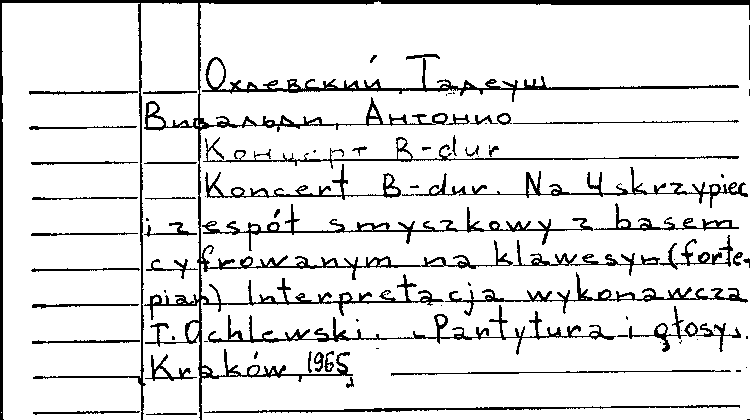 Охлевский, Тадеуш
Вивальди, Антонио
Концерт B-dur
Koncert B-dur. Na 4 skrzypiec
i zespół smyczkowy z basem
cyfrowanym na klawesyn (forte-
pian) Interpretacja wykonawcza
T. Ochlewski. - Partytura i głosy.
Kraków, 1965